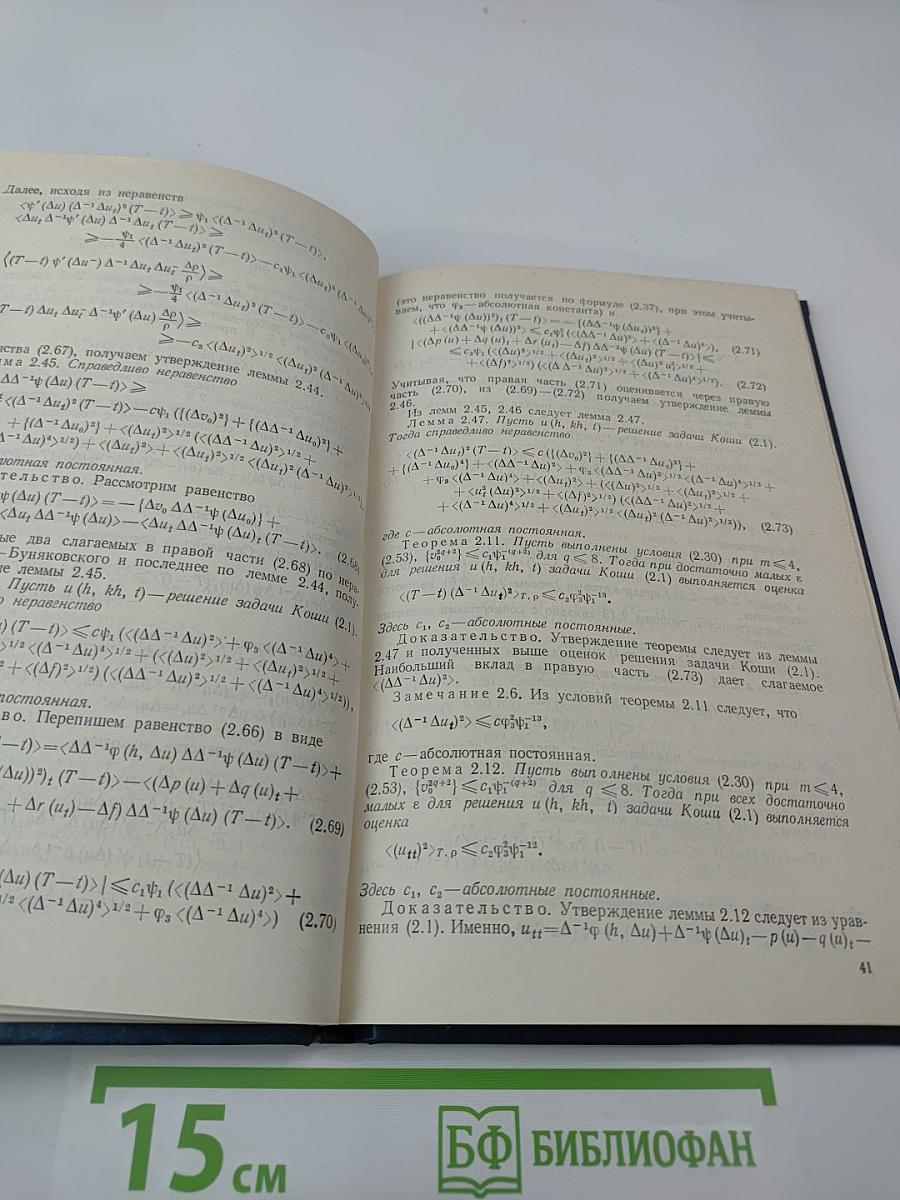 Далее, исходя из неравенств
<ψ′ (Δu) (Δ⁻¹ Δuₜ)² (T—t)> ⩾ ψ₁ <(Δ⁻¹ Δuₜ)² (T—t)>,
<Δuₜ Δ⁻¹ψ′ (Δu) Δ⁻¹ Δuₜ (T—t)> ⩾
⩾ —ψ₁/4 <(Δ⁻¹ Δuₜ)² (T—t)> — c₁ψ₁ <(Δuₜ)²
⟨(T—t) ψ′ (Δu⁻) Δ⁻¹ Δuₜ Δuₜ⁻ Δρ/ρ⟩ ⩾
⩾ —ψ₁/4 <(Δ⁻¹ Δuₜ)² (T—t)>
T—t) Δuₜ Δuₜ⁻ Δ⁻¹ψ′ (Δu) Δρ/ρ⟩ ⩾
⩾ —c₃ <(Δuₜ)²>¹ᐟ²
нства (2.67), получаем утверждение леммы 2.44.
ма 2.45. Справедливо неравенство
ΔΔ⁻¹ψ (Δu) (T—t)> ⩾
<(Δ⁻¹ Δuₜ)² (T—t)> — cψ₁ ({(Δv₀)²} + {(ΔΔ⁻¹ Δu₀)²} +
+ {(Δ⁻¹ Δu₀)⁴} + <(Δuₜ)²>¹ᐟ² (<(ΔΔ⁻¹ Δu)²>¹ᐟ² +
Δ⁻¹ Δu)⁴>¹ᐟ²) + <(Δuₜ)²> + <(Δuₜ)²>¹ᐟ² <(Δuₜ)² (Δ⁻¹ Δu)²>¹ᐟ²),
лютная постоянная.
тельство. Рассмотрим равенство
ψ (Δu) (T—t)> = — {Δv₀ ΔΔ⁻¹ψ (Δu₀)} +
<Δuₜ ΔΔ⁻¹ψ (Δu)> — <Δuₜ ΔΔ⁻¹ψ (Δu)ₜ (T—t)>. (2.68)
ые два слагаемых в правой части (2.68) по нера-
—Буняковского и последнее по лемме 2.44, полу-
ие леммы 2.45.
Пусть u (h, kh, t) — решение задачи Коши (2.1).
о неравенство
u) (T—t)> ⩽ cψ₁ (<(ΔΔ⁻¹ Δu)²> + φ₃ <(Δ⁻¹ Δu)⁴> +
>¹ᐟ² <(Δ⁻¹ Δu)⁴>¹ᐟ² + (<(Δu)²>¹ᐟ² + <(Δuₜ)²>¹ᐟ² +
² + <(Δf)²>¹ᐟ²) (<(ΔΔ⁻¹ Δu)²>¹ᐟ² + <(Δ⁻¹ Δu)⁴>¹ᐟ²)),
постоянная.
во. Перепишем равенство (2.66) в виде
—t)> = <ΔΔ⁻¹φ (h, Δu) ΔΔ⁻¹ψ (Δu) (T—t)> +
(Δu))²)ₜ (T—t)> — <(Δp (u) + Δq (u)ₜ +
+ Δr (uₜ) — Δf) ΔΔ⁻¹ψ (Δu) (T—t)>. (2.69)
(Δu) (T—t)>| ⩽ c₁ψ₁ (<(ΔΔ⁻¹ Δu)²> +
¹ᐟ² <(Δ⁻¹ Δu)⁴>¹ᐟ² + φ₃ <(Δ⁻¹ Δu)⁴>) (2.70)
(это неравенство получается по формуле (2.37), при этом учиты-
ваем, что φ₃ — абсолютная константа) и
<((ΔΔ⁻¹ψ (Δu))²)ₜ (T—t)> = — {(ΔΔ⁻¹ψ (Δu₀))²} +
+ <(ΔΔ⁻¹ψ (Δu))²> ⩽ c₂ψ₁² (<(ΔΔ⁻¹ Δu)²> + <(Δ⁻¹ Δu)⁴>), (2.71)
|<(Δp (u) + Δq (u)ₜ + Δr (uₜ) — Δf) ΔΔ⁻¹ψ (Δu) (T—t)>| ⩽
⩽ c₃ψ₁ (<(Δu)²>¹ᐟ² + <(Δuₜ)²>¹ᐟ² + <(Δu)² uₜ²>¹ᐟ² +
+ <(Δf)²>¹ᐟ²) (<(ΔΔ⁻¹ Δu)²>¹ᐟ² + <(Δ⁻¹ Δu)⁴>¹ᐟ²). (2.72)
Учитывая, что правая часть (2.71) оценивается через правую
часть (2.70), из (2.69)—(2.72) получаем утверждение леммы
2.46.
Из лемм 2.45, 2.46 следует лемма 2.47.
Лемма 2.47. Пусть u (h, kh, t) — решение задачи Коши (2.1).
Тогда справедливо неравенство
<(Δ⁻¹ Δuₜ)² (T—t)> ⩽ c ({(Δv₀)²} + {(ΔΔ⁻¹ Δu₀)²} +
+ {(Δ⁻¹ Δu₀)⁴} + <(ΔΔ⁻¹ Δu)²> + φ₃ <(ΔΔ⁻¹ Δu)²>¹ᐟ² <(Δ⁻¹ Δu)⁴>¹ᐟ² +
+ φ₃ <(Δ⁻¹ Δu)⁴> + <(Δuₜ)²> + (<(Δu)²>¹ᐟ² + <(Δuₜ)²>¹ᐟ² +
+ <uₜ² (Δu)²>¹ᐟ² + <(Δf)²>¹ᐟ²) (<(ΔΔ⁻¹ Δu)²>¹ᐟ² +
+ <(Δ⁻¹ Δu)⁴>¹ᐟ² + <(Δuₜ)²>¹ᐟ² <(Δuₜ)² (Δ⁻¹ Δu)²>¹ᐟ²)), (2.73)
где c — абсолютная постоянная.
Теорема 2.11. Пусть выполнены условия (2.30) при m ⩽ 4,
(2.53), {v₀^{2q+2}} ⩽ c₁ψ₁^{-(q+2)} для q ⩽ 8. Тогда при достаточно малых ε
для решения u (h, kh, t) задачи Коши (2.1) выполняется оценка
<(T—t) (Δ⁻¹ Δuₜ)²>_{T, ρ} ⩽ c₂φ₃²ψ₁⁻¹³.
Здесь c₁, c₂ — абсолютные постоянные.
Доказательство. Утверждение теоремы следует из леммы
2.47 и полученных выше оценок решения задачи Коши (2.1).
Наибольший вклад в правую часть (2.73) дает слагаемое
<(ΔΔ⁻¹ Δu)²>.
Замечание 2.6. Из условий теоремы 2.11 следует, что
<(Δ⁻¹ Δuₜ)²> ⩽ cφ₃²ψ₁⁻¹³,
где c — абсолютная постоянная.
Теорема 2.12. Пусть выполнены условия (2.30) при m ⩽ 4,
(2.53), {v₀^{2q+2}} ⩽ c₁ψ₁^{-(q+2)} для q ⩽ 8. Тогда при всех достаточно
малых ε для решения u (h, kh, t) задачи Коши (2.1) выполняется
оценка
<(uₜₜ)²>_{T, ρ} ⩽ c₂φ₃²ψ₁⁻¹².
Здесь c₁, c₂ — абсолютные постоянные.
Доказательство. Утверждение леммы 2.12 следует из урав-
нения (2.1). Именно, uₜₜ = Δ⁻¹φ (h, Δu) + Δ⁻¹ψ (Δu)ₜ — p (u) — q (u)ₜ —
41
15 см
БФ БИБЛИОФАН